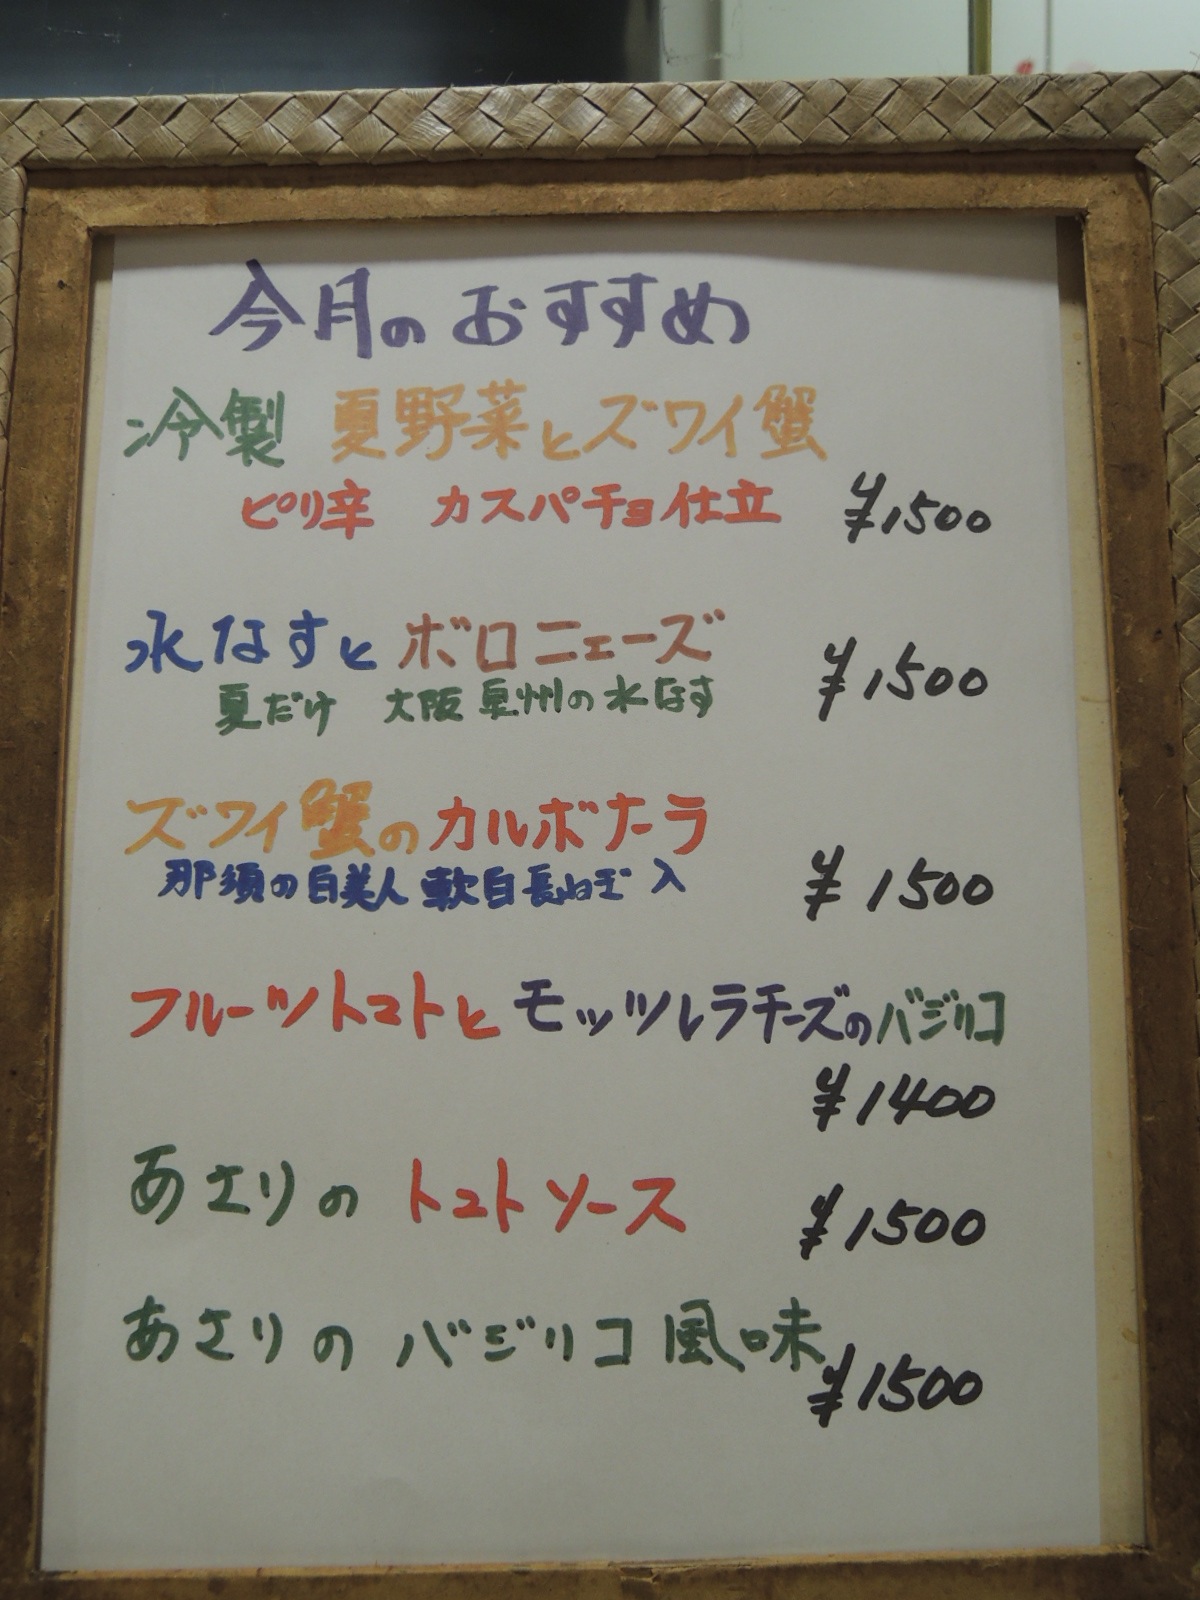 今月のおすすめ
冷製 夏野菜とズワイ蟹
ピリ辛 カスパチョ仕立 ¥1500
水なすとボロニェーズ
夏だけ 大阪泉州の水なす ¥1500
ズワイ蟹のカルボナーラ
那須の白美人 軟白長ねぎ入 ¥1500
フルーツトマトとモッツレラチーズのバジリコ
¥1400
あさりの トマトソース ¥1500
あさりの バジリコ風味
¥1500